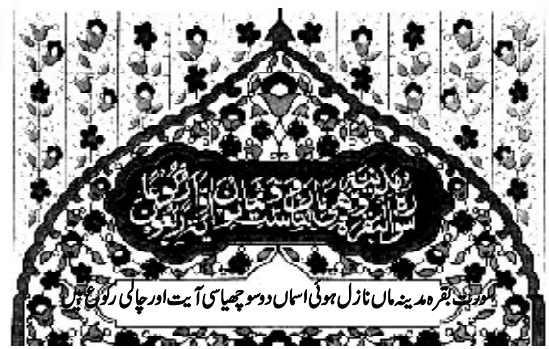 سورة البقرة مدنية وهي مائتان وست وثمانون اية واربعون ركوعا
سورت بقرہ مدینہ ماں نازل ہوئی اسماں دو سو چھیاسی آیت اور چالی رکوع ہیں